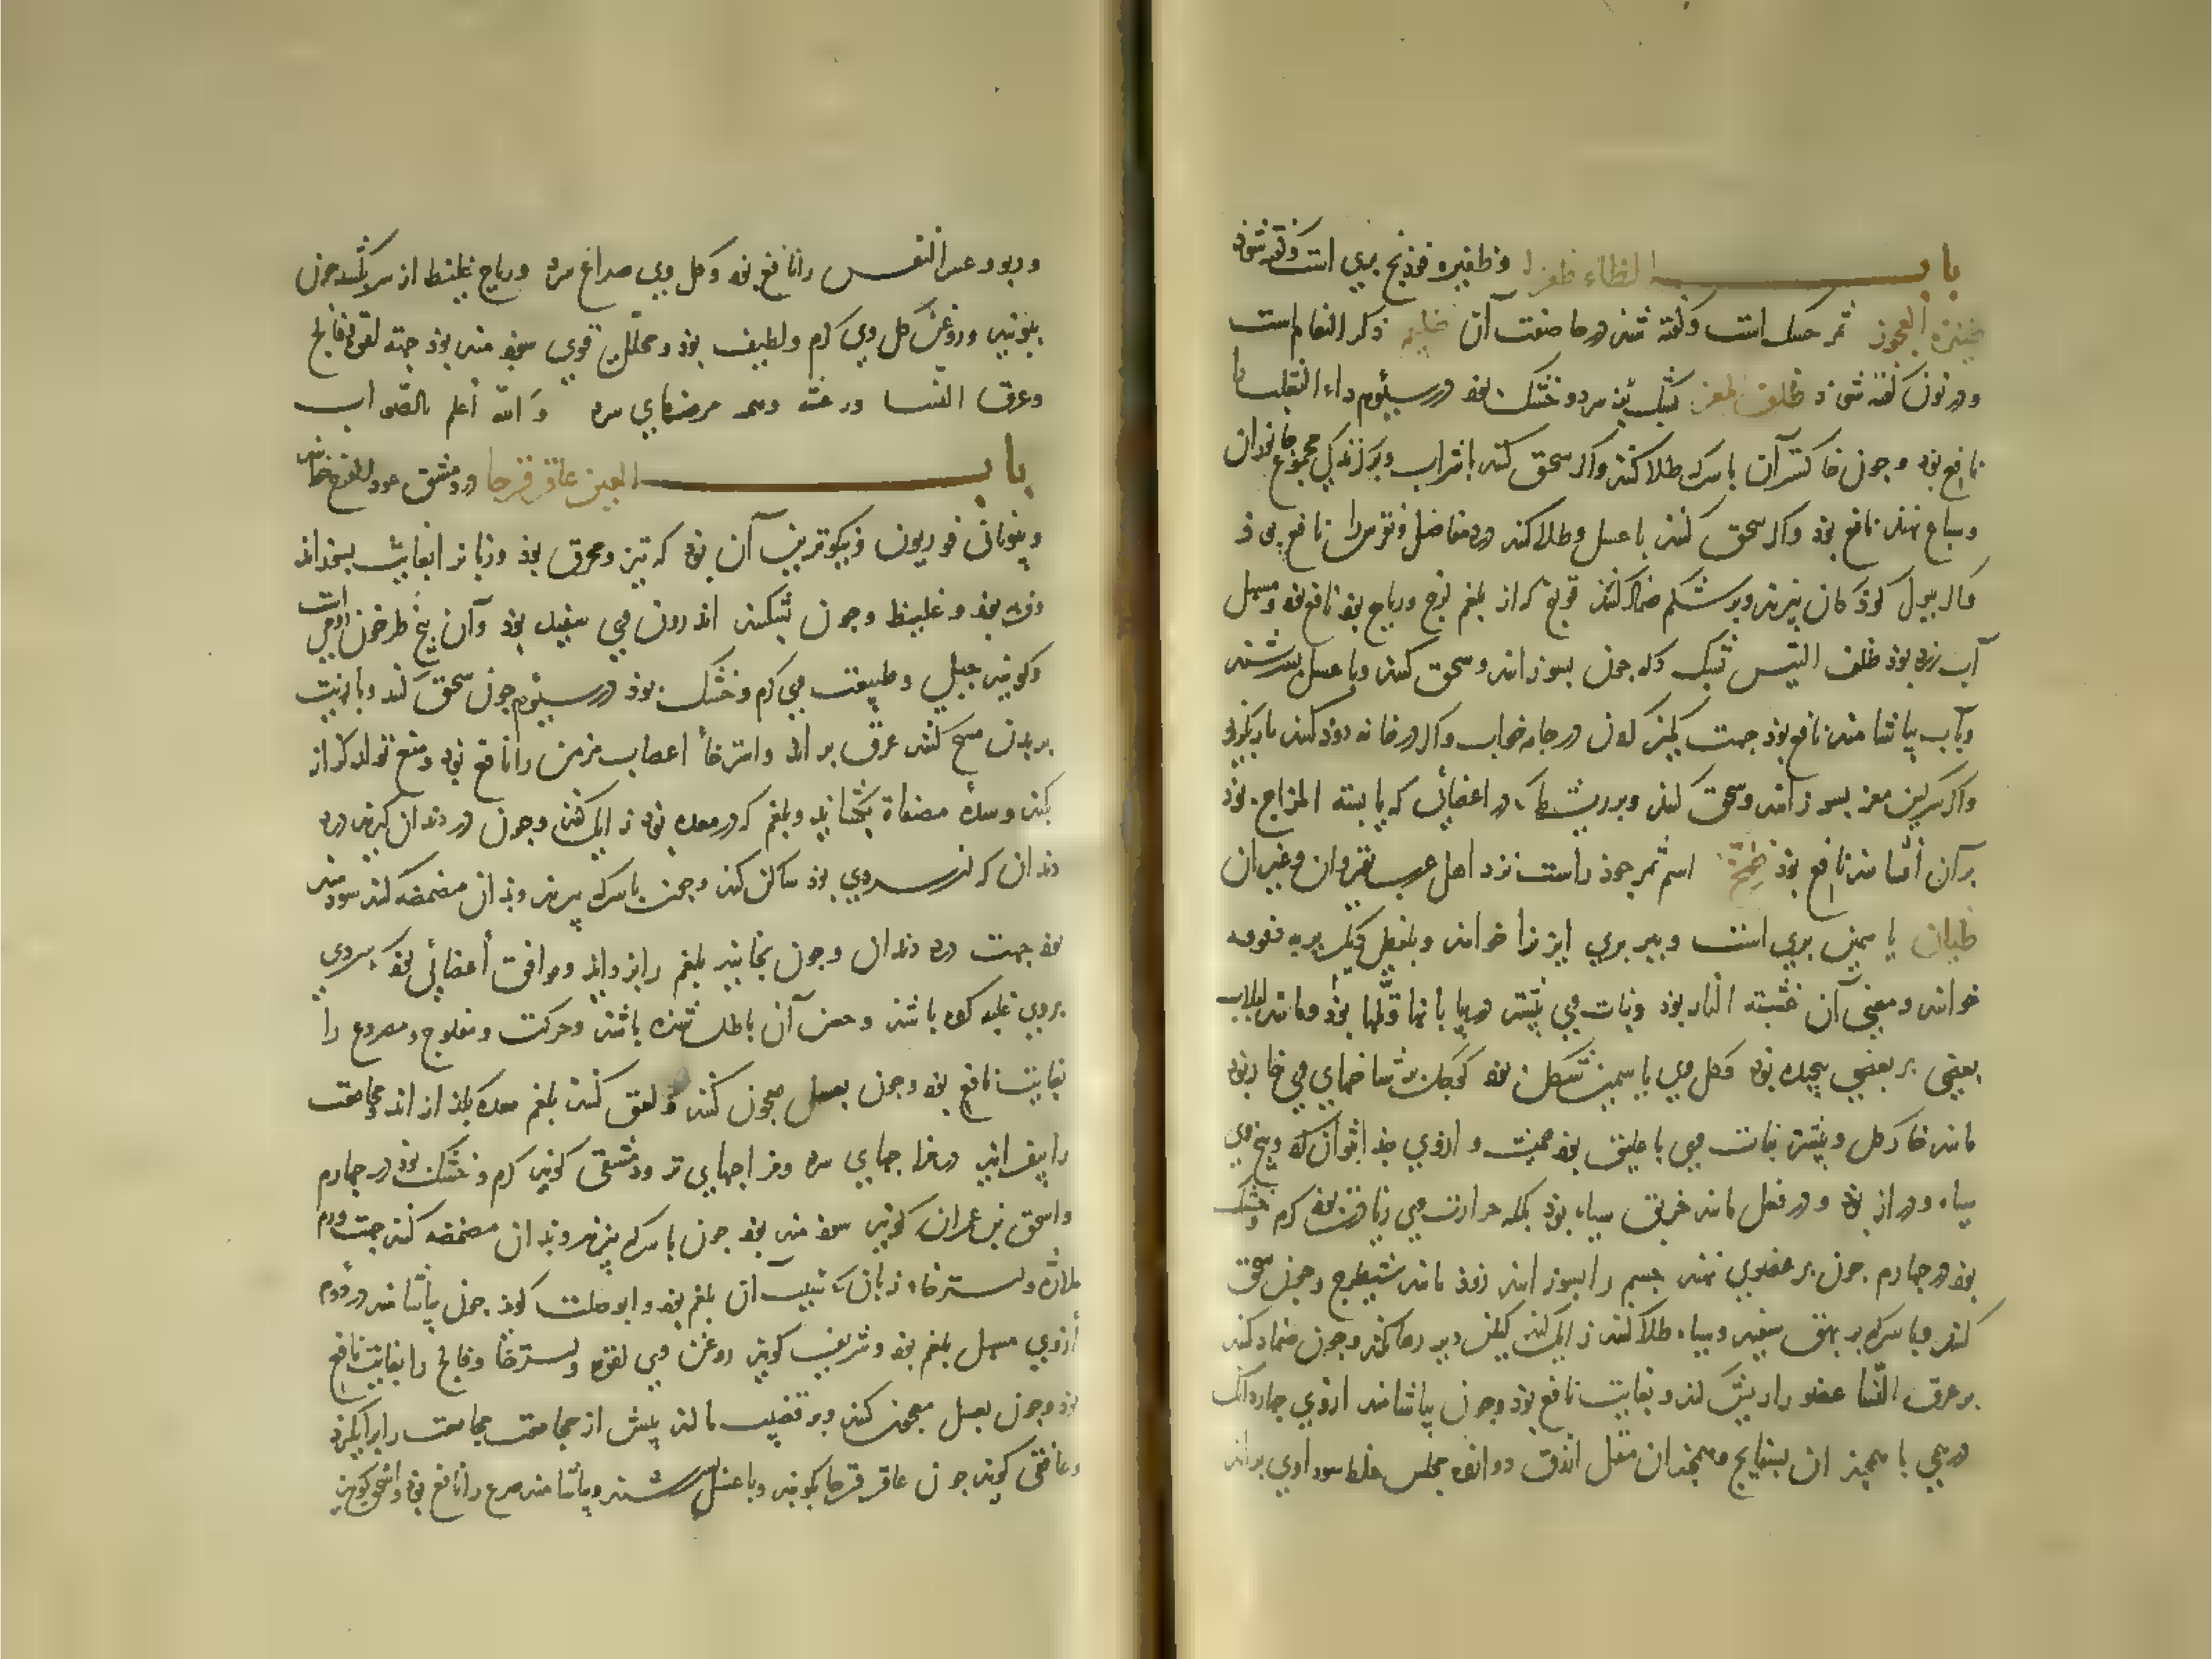 باب الظاء ظفرا و ظفیره فوذنج بری است و گفته شود
خنزة العجوز ثمر حسک است و گفته شد در حا صفت آن ظلیم ذکر النعام است
و در نون گفته شود ظلف المعز بتک بز سرد و خشک بود در سیوم داء الثعلب را
نافع بود و چون خاکستر آن با سرکه طلا کنند و اگر سحق کنند با شراب و بر گزندگی مجموع جانوران
و سباع نهند نافع بود و اگر سحق کنند با عسل و طلا کنند درد مفاصل و نقرس را نافع بود
و اگر ببول کودکان بپزند و بر شکم ضماد کنند قولنج که از بلغم لزج و ریاح بود نافع بود و مسهل
آب زرد بود ظلف التیس بتک وی چون بسوزانند و سحق کنند و با عسل بسرشند
و بآب بیاشامند نافع بود جهت کمیز کردن در جامه خواب و اگر در خانه دود کنند مار بگریزد
و اگر سرگین معز بسوزانند و سحق کنند و بر ریشها که در اعضائی که یابسة المزاج بود
بر آن افشانند نافع بود اسم ثمر جوز است نزد اهل عرب قیروان و غیر آن
ظیان یاسمین بری است و ببربری ایزنزا خوانند و بلفظی دیگر بربه تقوقه
خوانند و معنی آن خشبة النار بود و نبات وی بیشتر در بیابانها و تلها بود و مانند لبلاب
بعضی بر بعضی پیچیده بود و گل وی یاسمین شکل بود کوچک‌تر شاخهای وی خار بود
مانند خار گل و بیشتر نبات وی با علیق بود و از وی جدا نتوان کرد و بیخ وی
سیاه و دراز بود و در فعل مانند خربق سیاه بود بلکه حرارت وی زیادت بود گرم و خشک
بود در چهارم چون بر عضوی نهند جسم را بسوزاند زود مانند شیطرج و چون سحق
کنند و با سرکه بر بهق سفید و سیاه طلا کنند زایل کند کلف و برص را کند و چون ضماد کنند
بر عرق النسا عضو را ریش کند و بغایت نافع بود و چون بیاشامند از وی چهار دانگ
درمی با همچندان بسفایج و همچندان مقل ازرق دوازده مجلس خلط سوداوی براند
و ربو و عسر النفس را نافع بود و گل وی صداع سرد و ریاح غلیظ از سر بکشد چون
ببویند و روغن گل وی گرم و لطیف بود و محللی قوی سودمند بود جهت لقوه و فالج
و عرق النسا و رعشه و همه مرضهای سرد والله اعلم بالصواب
باب العین عاقر قرحا در دمشق عود القرح خوانند
و بیونانی فوریون و نیکوترین آن بود که تیز و محرق بود و زبان را بغایت بسوزاند
وزن بود و غلیظ و چون بشکنند اندرون وی سفید بود و آن بیخ طرخون رومی است
و گویند جبلی و طبیعت وی گرم و خشک بود در سیوم چون سحق کنند و با زیت
بر بدن مسح کنند عرق براند و استرخا اعصاب مزمن را نافع بود و منع تولد کزاز
بکند و سده مصفاة بگشاید و بلغم که در معده بود زایل کند و چون در دندان گیرند درد
دندان که از سردی بود ساکن کند و چون با سرکه بپزند و بدان مضمضه کنند سودمند
بود جهت درد دندان و چون بخایند بلغم را براند و موافق اعضائی بود که سردی
بر وی غلبه کرده باشد و حس آن باطل شده باشد و حرکت و مفلوج و مصروع را
بغایت نافع بود و چون بعسل معجون کنند و لعق کنند بلغم معده بگذازاند و مجامعت
را بیفزاید در مزاجهای سرد و مزاجهای تر و دمشقی گوید گرم و خشک بود در چهارم
و اسحق بن عمران گوید سودمند بود چون با سرکه بپزند و بدان مضمضه کنند جهت ورم
ملازه و استرخاء زبان که سبب آن بلغم بود و ابو صلت گوید چون بیاشامند دو درم
از وی مسهل بلغم بود و شریف گوید روغن وی لقوه و استرخا و فالج را بغایت نافع
بود و چون بعسل معجون کنند و بر قضیب مالند پیش از مجامعت مجامعت را
و غافقی گوید چون عاقر قرحا بکوبند و با عسل بسرشند و بیاشامند صرع را نافع بود و اسحق گوید